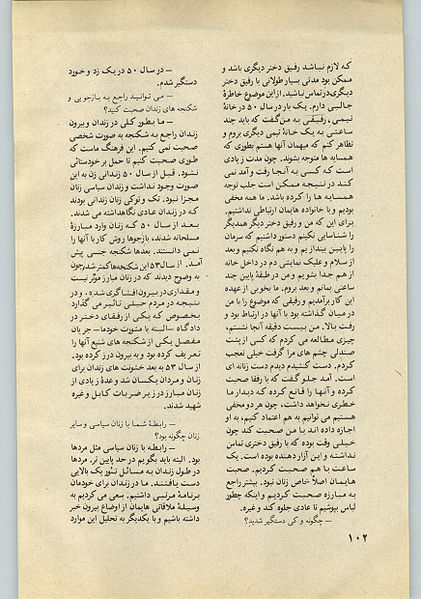 که لازم نباشد رفیق دختر دیگری باشد و
ممکن بود مدتی بسیار طولانی با رفیق دختر
دیگری در تماس نباشید. از این موضوع خاطرهٔ
جالبی دارم. یک بار در سال ۵۰ در خانهٔ
تیمی، رفیقی به من گفت که باید چند
ساعتی به یک خانهٔ تیمی دیگری بروم و
تظاهر کنم که میهمان آنها هستم بطوری که
همسایه ها متوجه بشوند. چون مدت زیادی
است که کسی به آنجا رفت و آمد نمی
کند در نتیجه ممکن است جلب توجه
همسایه ها را کرده باشد. ما همه مخفی
بودیم و با خانواده هایمان ارتباطی نداشتیم.
برای این که من و رفیق دختر دیگر همدیگر
را شناسایی نکنیم دستور داشتیم که سرمان
را پایین بیندازیم و به هم نگاه نکنیم و بعد
از سلام و علیک نمایشی دم در داخل خانه
از هم جدا بشویم و من در طبقهٔ پایین چند
ساعتی بمانم و بعد بروم. ما بخوبی از عهده
این کار برآمدیم و رفیقی که موضوع را با من
در میان گذاشته بود با آنها در ارتباط بود و
رفت بالا. من بیست دقیقه آنجا نشستم،
چیزی مطالعه می کردم که کسی از پشت
صندلی چشم های مرا گرفت خیلی تعجب
کردم. دست کشیدم دیدم دست زنانه ای
است. آمد جلو گفت که با رفقا صحبت
کرده و آنها را قانع کرده که دیدار ما
خطری نخواهد داشت، چون هر دو مخفی
هستیم می توانیم به هم اعتماد کنیم، به او
اجازه داده اند با من صحبت کند چون
خیلی وقت بوده که با رفیق دختری تماس
نداشته و این آزار دهنده بوده است. یک
ساعت با هم صحبت کردیم. صحبت
هایمان اصلاً خاص زنان نبود. بیشتر راجع
به مبارزه صحبت کردیم و اینکه چطور
لباس بپوشیم تا عادی جلوه کند و غیره.
– چگونه و کی دستگیر شدید؟
– در سال ۵۰ در یک زد و خورد
دستگیر شدم.
– می توانید راجع به بازجویی و
شکنجه های زندان صحبت کنید؟
– ما بطور کلی در زندان و بیرون
زندان راجع به شکنجه به صورت شخصی
صحبت نمی کنیم. این فرهنگ ماست که
طوری صحبت کنیم تا حمل بر خودستائی
نشود. قبل از سال ۵۰ زندانی زن به این
صورت وجود نداشت و زندان سیاسی زنان
مجزا نبود. تک و توکی زنان زندانی بودند
که در زندان عادی نگاهداشته می شدند.
بعد از سال ۵۰ که زنان وارد مبارزهٔ
مسلحانه شدند، بازجوها روش کار با آنها را
نمی دانستند. بعدها شکنجه جنسی پیش
آمد. از سال ۵۳ این شکنجه‌ها کمتر شد چون
به وضوح دیدند که در زنان مبارز موثر نیست
و مقداری در بیرون افشاگری شده، و در
نتیجه در مردم خیلی تاثیر می گذارد
بخصوص که یکی از رفقای دختر در
دادگاه – البته با مشورت خودما– جریان
مفصل یکی از شکنجه های شنیع آنها را
تعریف کرده بود و به بیرون درز کرده بود.
از سال ۵۳ به بعد خشونت های زندان برای
زنان و مردان یکسان شد و عدهٔ زیادی از
زنان مبارز در زیر ضربات کابل و غیره
شهید شدند.
– رابطهٔ شما با زنان سیاسی و سایر
زنان چگونه بود؟
– رابطه با زنان سیاسی مثل مردها
بود. البته باید بگویم در حد پایین تر. مردها
در طول زندان به مسائل تئوریک بالایی
دست یافتند. ما در زندان برای خودمان
برنامهٔ مرتبی داشتیم. سعی می کردیم به
وسیلهٔ ملاقاتی هایمان از اوضاع بیرون خبر
داشته باشیم و با یکدیگر به تحلیل این موارد
۱۰۲